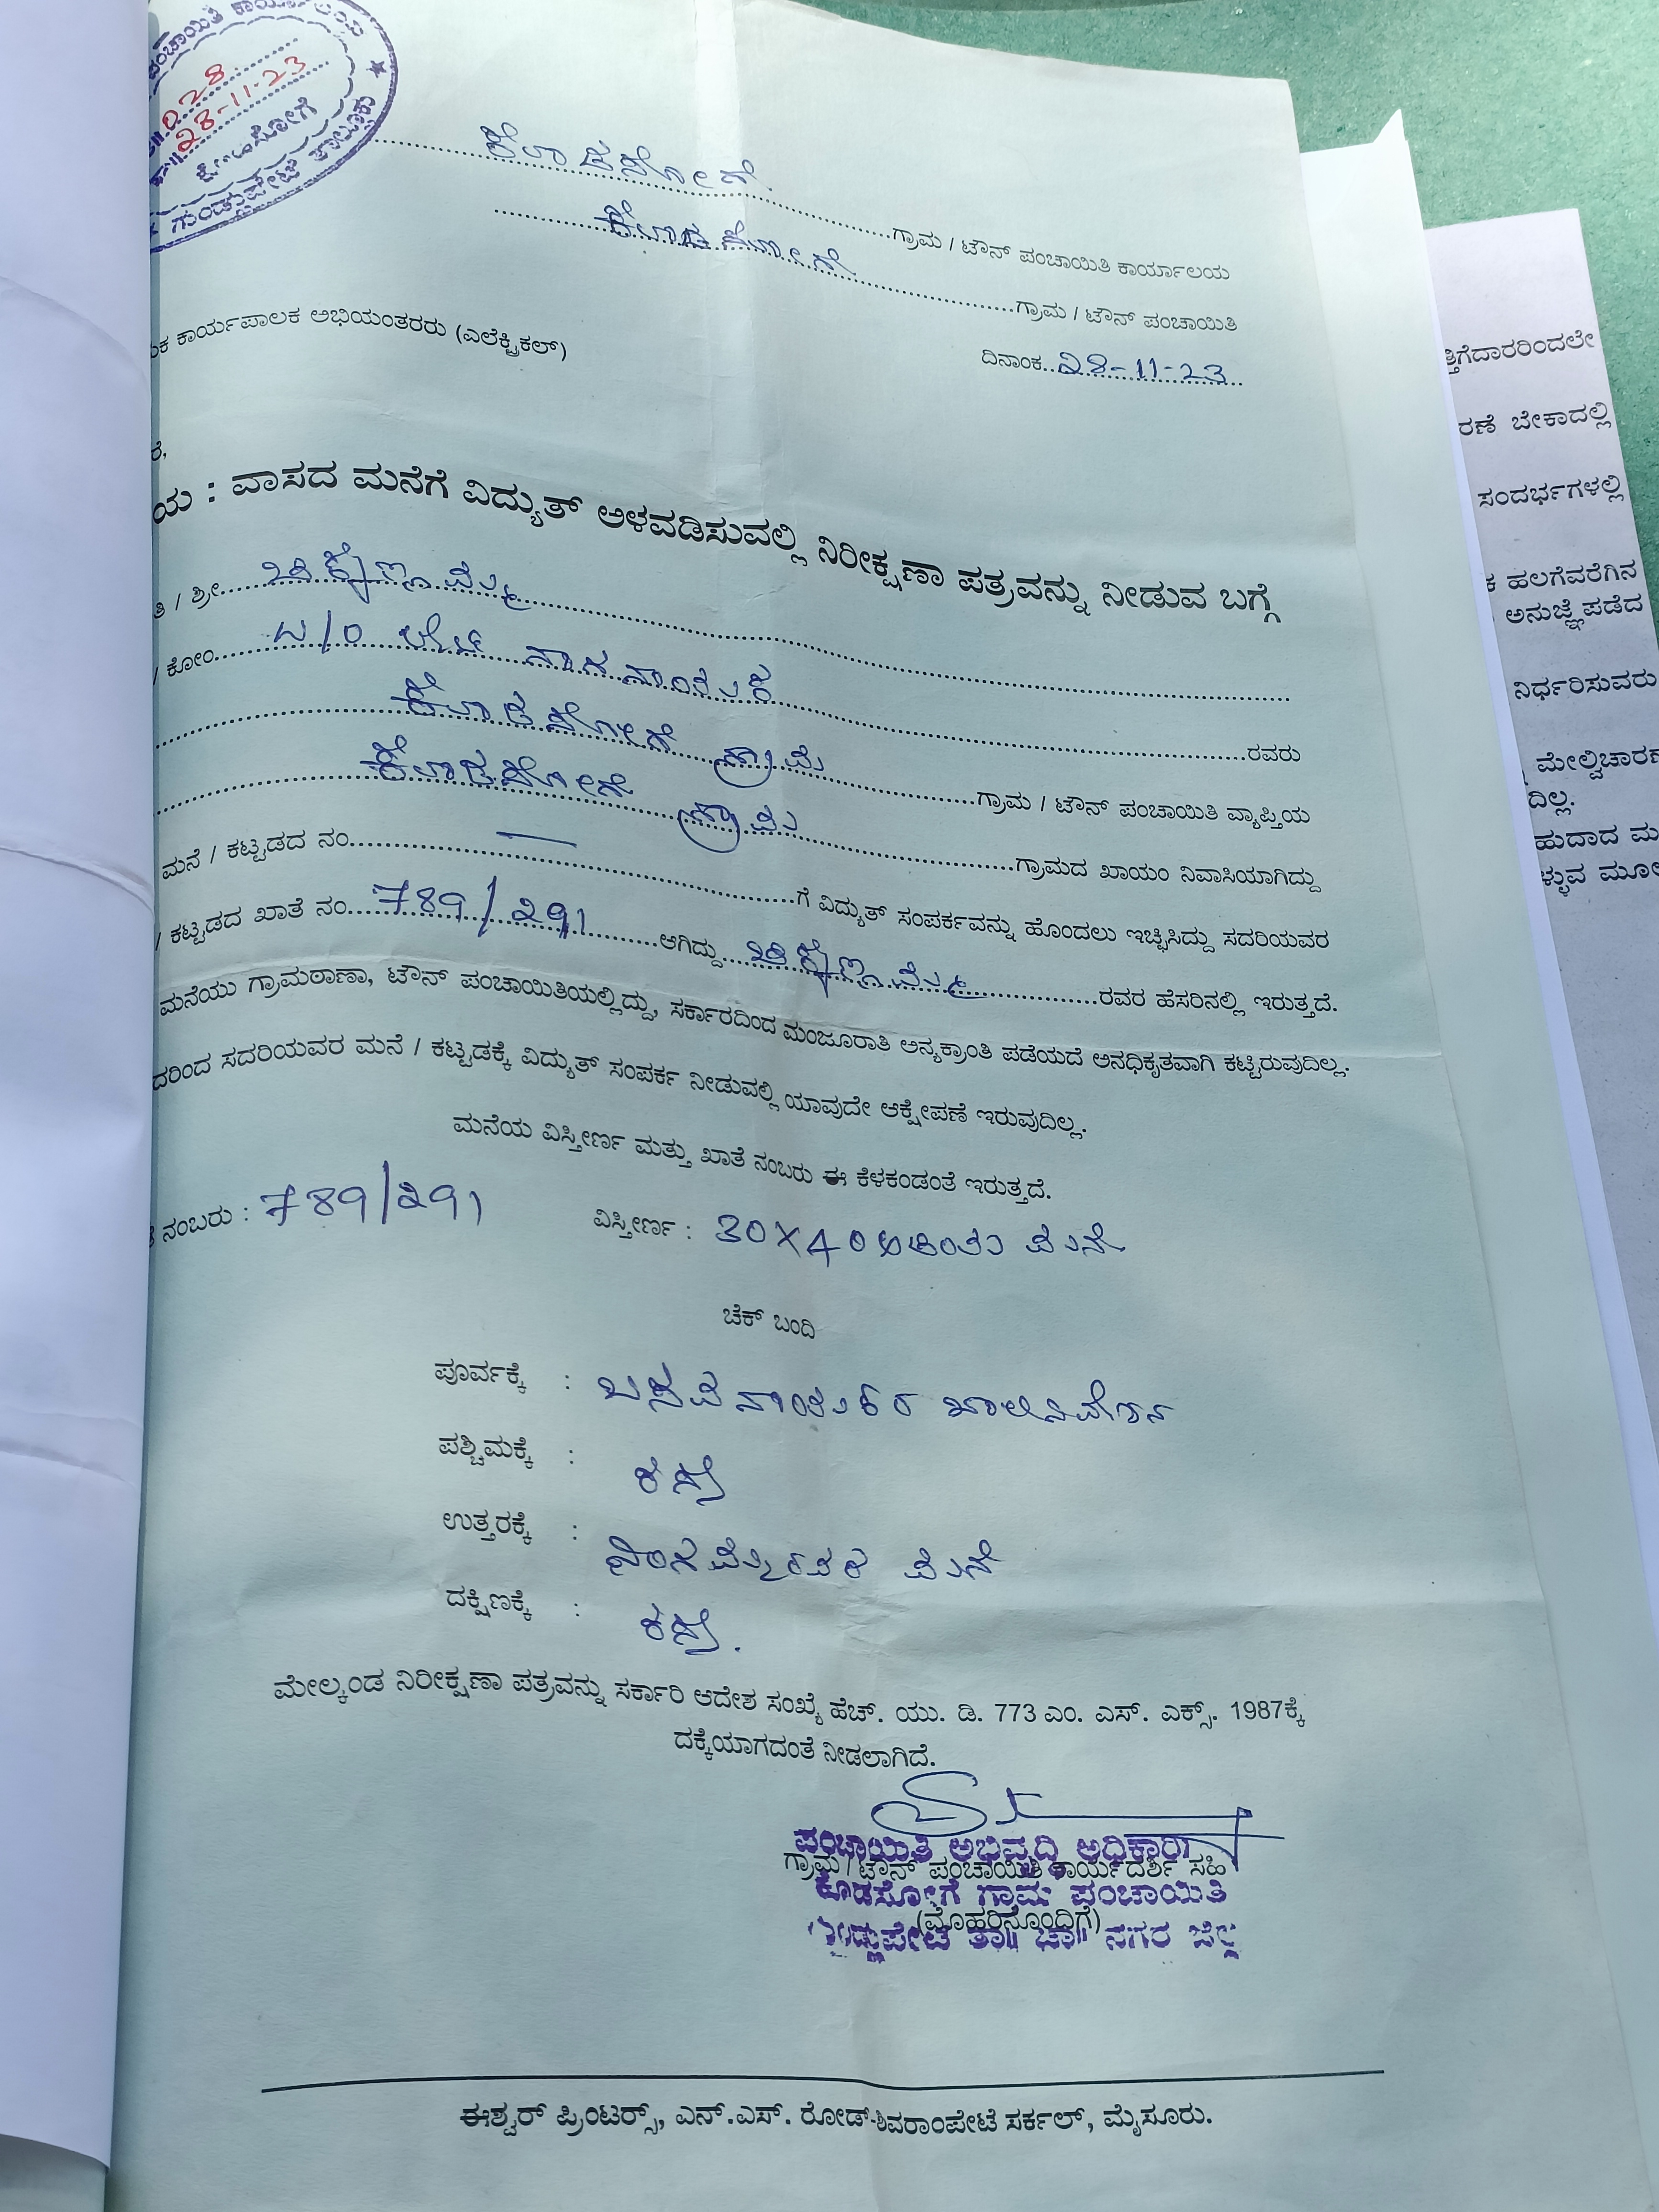 ಪಂಚಾಯಿತಿ
028
28-11-23
ಗುಂಡ್ಲುಪೇಟೆ ತಾಲ್ಲೂಕು
ಕೂಡಸೋಗೆ
ಗ್ರಾಮ / ಟೌನ್ ಪಂಚಾಯಿತಿ ಕಾರ್ಯಾಲಯ
ಕೂಡಸೋಗೆ
ಗ್ರಾಮ / ಟೌನ್ ಪಂಚಾಯಿತಿ
ಕಾರ್ಯಪಾಲಕ ಅಭಿಯಂತರರು (ಎಲೆಕ್ಟ್ರಿಕಲ್)
ದಿನಾಂಕ..28-11-23
ಯ : ವಾಸದ ಮನೆಗೆ ವಿದ್ಯುತ್ ಅಳವಡಿಸುವಲ್ಲಿ ನಿರೀಕ್ಷಣಾ ಪತ್ರವನ್ನು ನೀಡುವ ಬಗ್ಗೆ
ತಿ / ಶ್ರೀ....
/ ಕೋಂ.... ನಾಗನಾಯಕ ....ರವರು
ಕೂಡಸೋಗೆ ಗ್ರಾಮ ....ಗ್ರಾಮ / ಟೌನ್ ಪಂಚಾಯಿತಿ ವ್ಯಾಪ್ತಿಯ
ಕೂಡಸೋಗೆ ಗ್ರಾಮ ....ಗ್ರಾಮದ ಖಾಯಂ ನಿವಾಸಿಯಾಗಿದ್ದು
ಮನೆ / ಕಟ್ಟಡದ ನಂ.... — ....ಗೆ ವಿದ್ಯುತ್ ಸಂಪರ್ಕವನ್ನು ಹೊಂದಲು ಇಚ್ಛಿಸಿದ್ದು ಸದರಿಯವರ
/ ಕಟ್ಟಡದ ಖಾತೆ ನಂ.... 789/291 ....ಆಗಿದ್ದು.... ....ರವರ ಹೆಸರಿನಲ್ಲಿ ಇರುತ್ತದೆ.
ಮನೆಯು ಗ್ರಾಮಠಾಣಾ, ಟೌನ್ ಪಂಚಾಯಿತಿಯಲ್ಲಿದ್ದು, ಸರ್ಕಾರದಿಂದ ಮಂಜೂರಾತಿ ಅನ್ಯಕ್ರಾಂತಿ ಪಡೆಯದೆ ಅನಧಿಕೃತವಾಗಿ ಕಟ್ಟಿರುವುದಿಲ್ಲ.
ದರಿಂದ ಸದರಿಯವರ ಮನೆ / ಕಟ್ಟಡಕ್ಕೆ ವಿದ್ಯುತ್ ಸಂಪರ್ಕ ನೀಡುವಲ್ಲಿ ಯಾವುದೇ ಆಕ್ಷೇಪಣೆ ಇರುವುದಿಲ್ಲ.
ಮನೆಯ ವಿಸ್ತೀರ್ಣ ಮತ್ತು ಖಾತೆ ನಂಬರು ಈ ಕೆಳಕಂಡಂತೆ ಇರುತ್ತದೆ.
ನಂಬರು : 789/291 ವಿಸ್ತೀರ್ಣ : 30X40 ಮನೆ
ಚೆಕ್ ಬಂದಿ
ಪೂರ್ವಕ್ಕೆ : ಬಸವನಾಯಕರ ಖಾಲಿನಿವೇಶನ
ಪಶ್ಚಿಮಕ್ಕೆ : ರಸ್ತೆ
ಉತ್ತರಕ್ಕೆ : ನಿಂಗಮ್ಮರವರ ಮನೆ
ದಕ್ಷಿಣಕ್ಕೆ : ರಸ್ತೆ.
ಮೇಲ್ಕಂಡ ನಿರೀಕ್ಷಣಾ ಪತ್ರವನ್ನು ಸರ್ಕಾರಿ ಆದೇಶ ಸಂಖ್ಯೆ ಹೆಚ್. ಯು. ಡಿ. 773 ಎಂ. ಎಸ್. ಎಕ್ಸ್. 1987ಕ್ಕೆ
ದಕ್ಕೆಯಾಗದಂತೆ ನೀಡಲಾಗಿದೆ.
ಪಂಚಾಯಿತಿ ಅಭಿವೃದ್ಧಿ ಅಧಿಕಾರಿ
ಗ್ರಾಮ / ಟೌನ್ ಪಂಚಾಯಿತಿ ಕಾರ್ಯದರ್ಶಿ ಸಹಿ
ಕೂಡಸೋಗೆ ಗ್ರಾಮ ಪಂಚಾಯಿತಿ
(ಮೊಹರಿನೊಂದಿಗೆ)
ಗುಂಡ್ಲುಪೇಟೆ ತಾ|| ಚಾ|| ನಗರ ಜಿಲ್ಲೆ
ಈಶ್ವರ್ ಪ್ರಿಂಟರ್ಸ್, ಎನ್.ಎಸ್. ರೋಡ್-ಶಿವರಾಂಪೇಟೆ ಸರ್ಕಲ್, ಮೈಸೂರು.
ತ್ತಿಗೆದಾರರಿಂದಲೇ
ರಣೆ ಬೇಕಾದಲ್ಲಿ
ಸಂದರ್ಭಗಳಲ್ಲಿ
ಹಲಗೆವರೆಗಿನ
ಅನುಜ್ಞೆ ಪಡೆದ
ನಿರ್ಧರಿಸುವರು
ಮೇಲ್ವಿಚಾರಣ
ದಿಲ್ಲ.
ಹುದಾದ ಮ
ಳ್ಳುವ ಮೂಲ